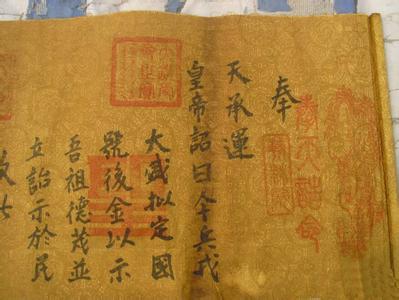 奉
天承運
皇帝詔曰今兵戎
大盛拟定國
號後金以示
吾祖德茂並
立詔示於民
奉天誥命